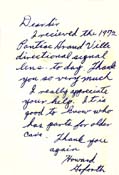 Dear Sir
I recieved the 1972
Pontiac Grand Ville
directional signal
lens to day. Thank
you so very much
I really appreciate
your help. It is
good to know who
has parts for older
cars. Thank you
again
Howard